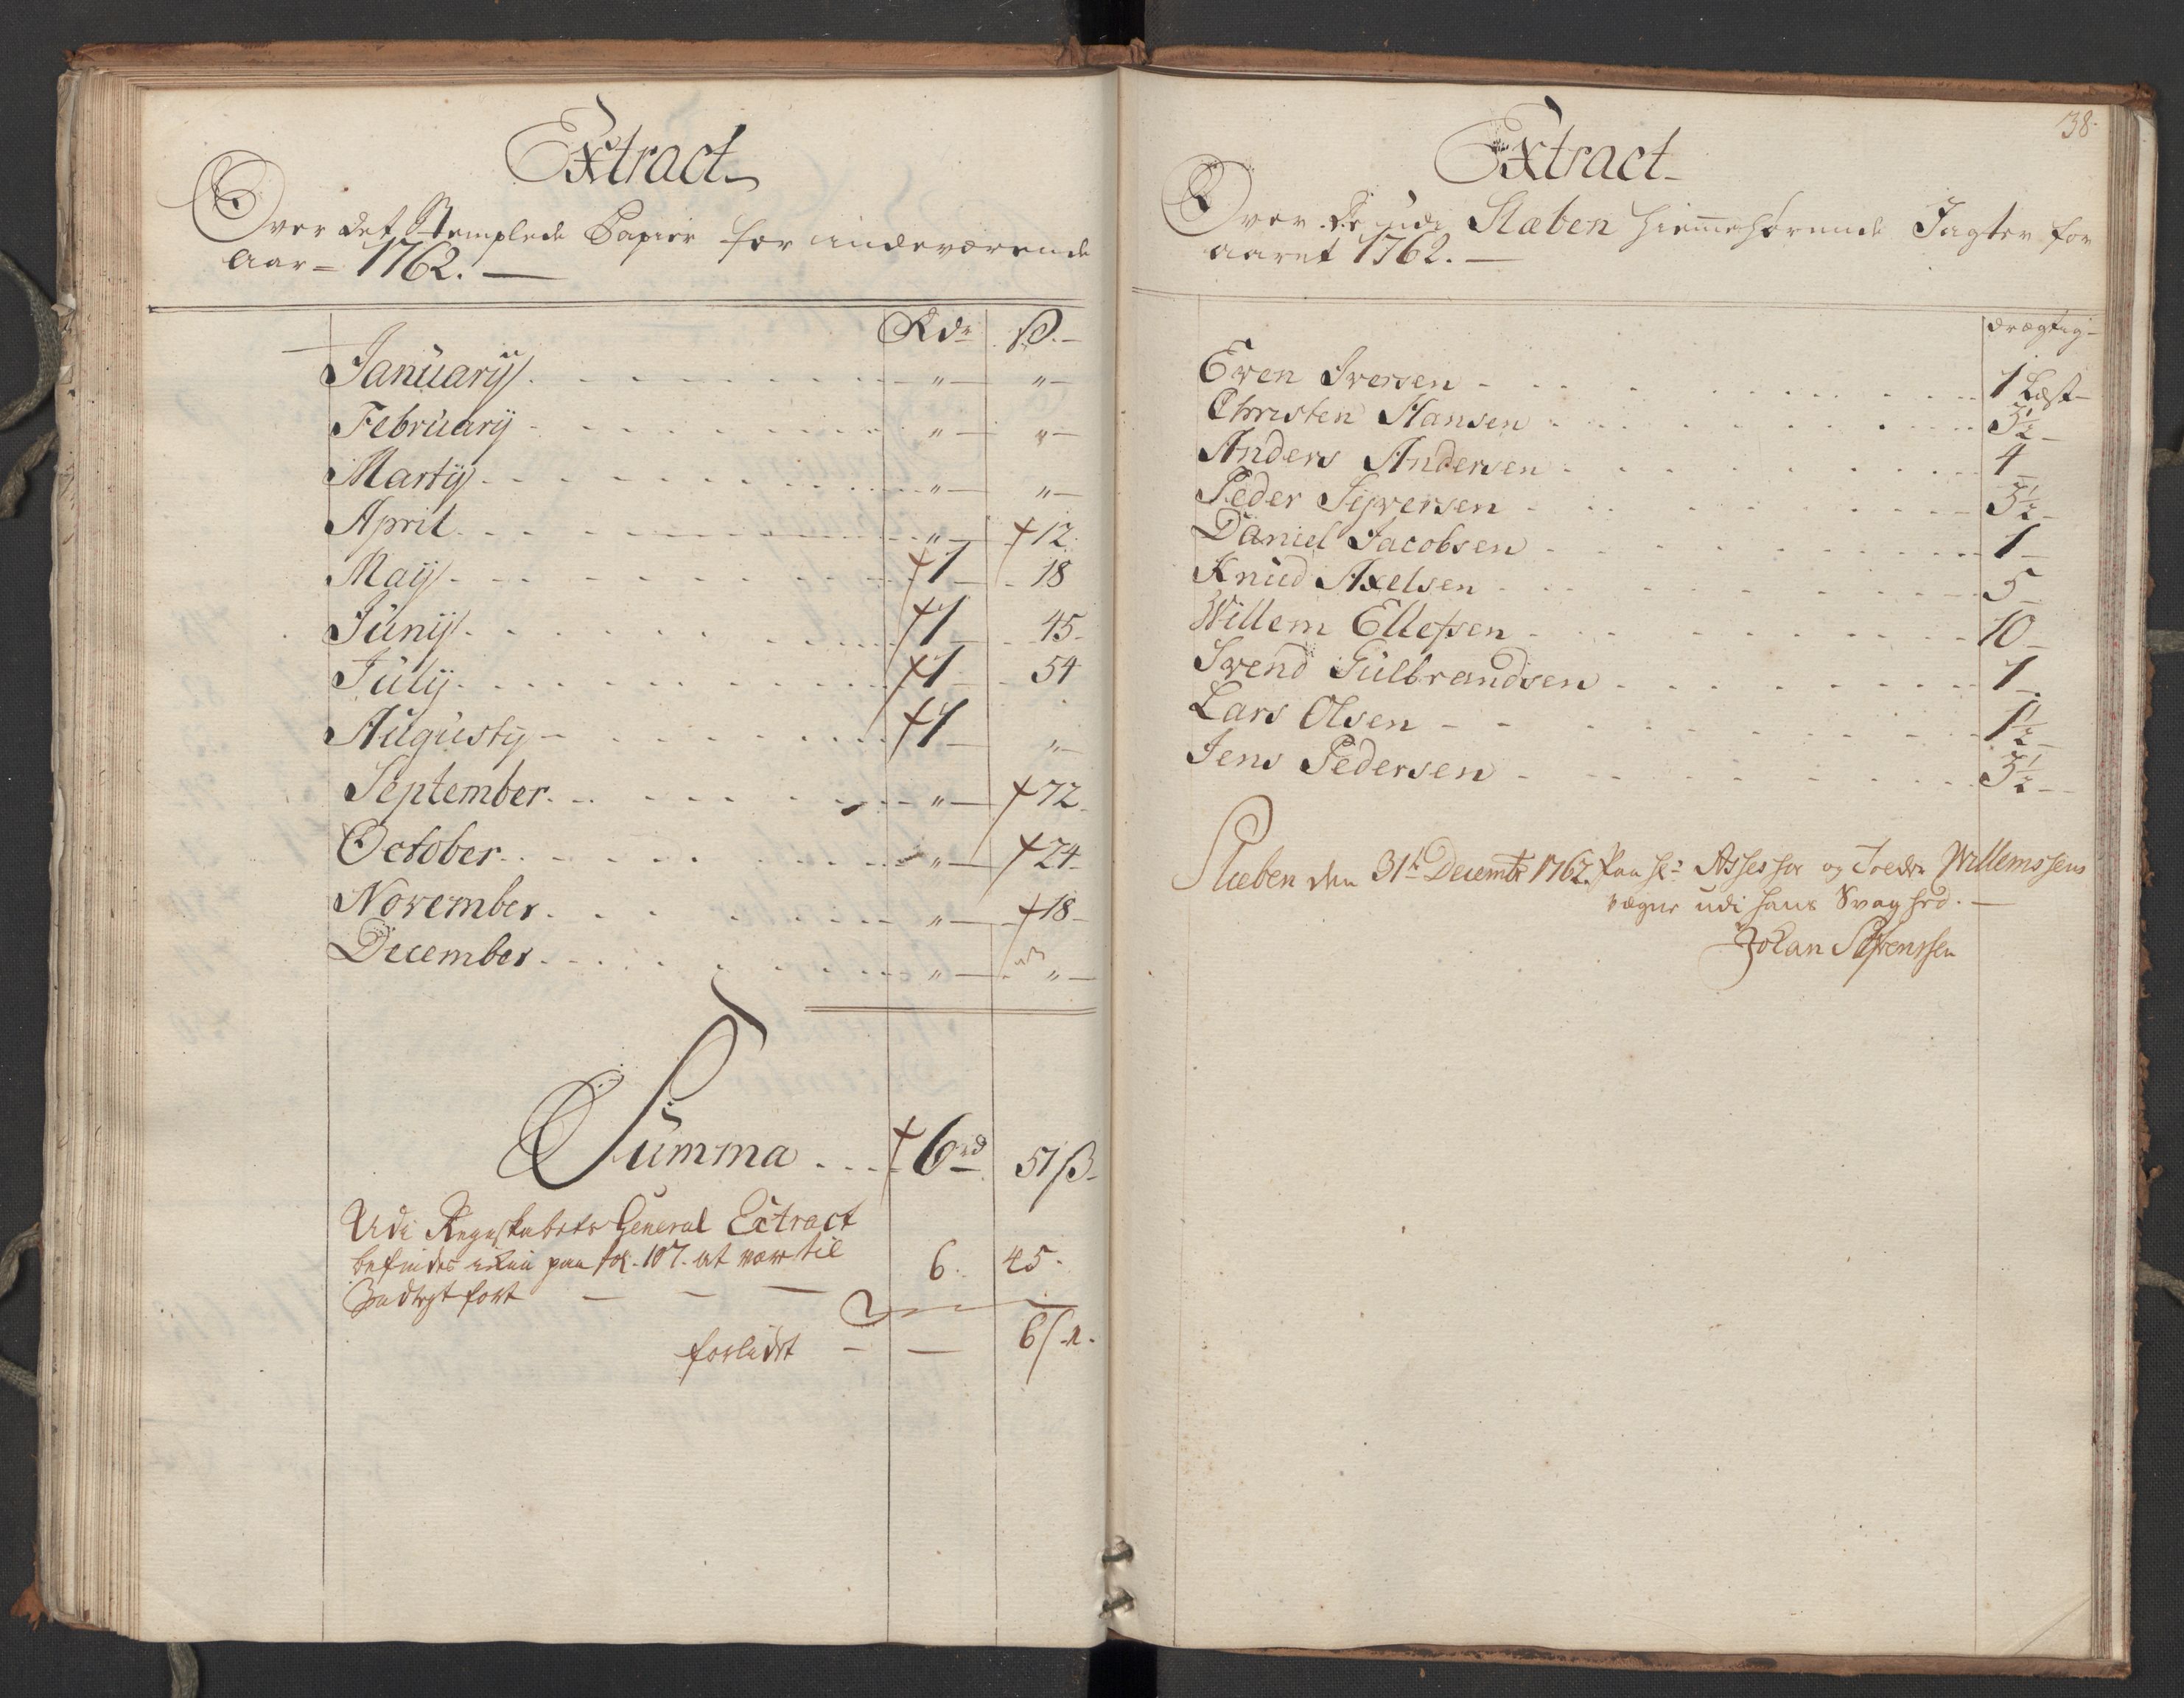 Extract
Over det Stemplede Papier for indeværende
Aar = 1762. —
Rdr ß. —
Januarij " — " —
February " — " —
Martij " — " —
April " — 12
Maij 1 — 18
Junij 1 — 45
July 1 — 54
Augusty 1 — " —
September " — 72
October " — 24
November " — 18
December " — " —
Summa 6 rd 51 ß
Udi Regnskabets General Extract
befindes paa fol. 107. at være til
6. 45.
forladt — — 6 ß.
138.
Extract
Over De udi Stæben hiemmehørende Jagter for
aaret 1762. —
drægtig
Even Iversen 1 Læst
Christen Hansen 3½
Anders Andersen 4
Peder Siversen 3½
Daniel Jacobsen 1
Knud Axelsen 5
Willem Ellefsen 10
Svend Gulbrandsen 1
Lars Olsen 1½
Jens Pedersen 3½
Stæben den 31te Decembr 1762. Paa Hr Assessor og Tolder Willemssens
vegne udi hans Svaghed. —
Johan